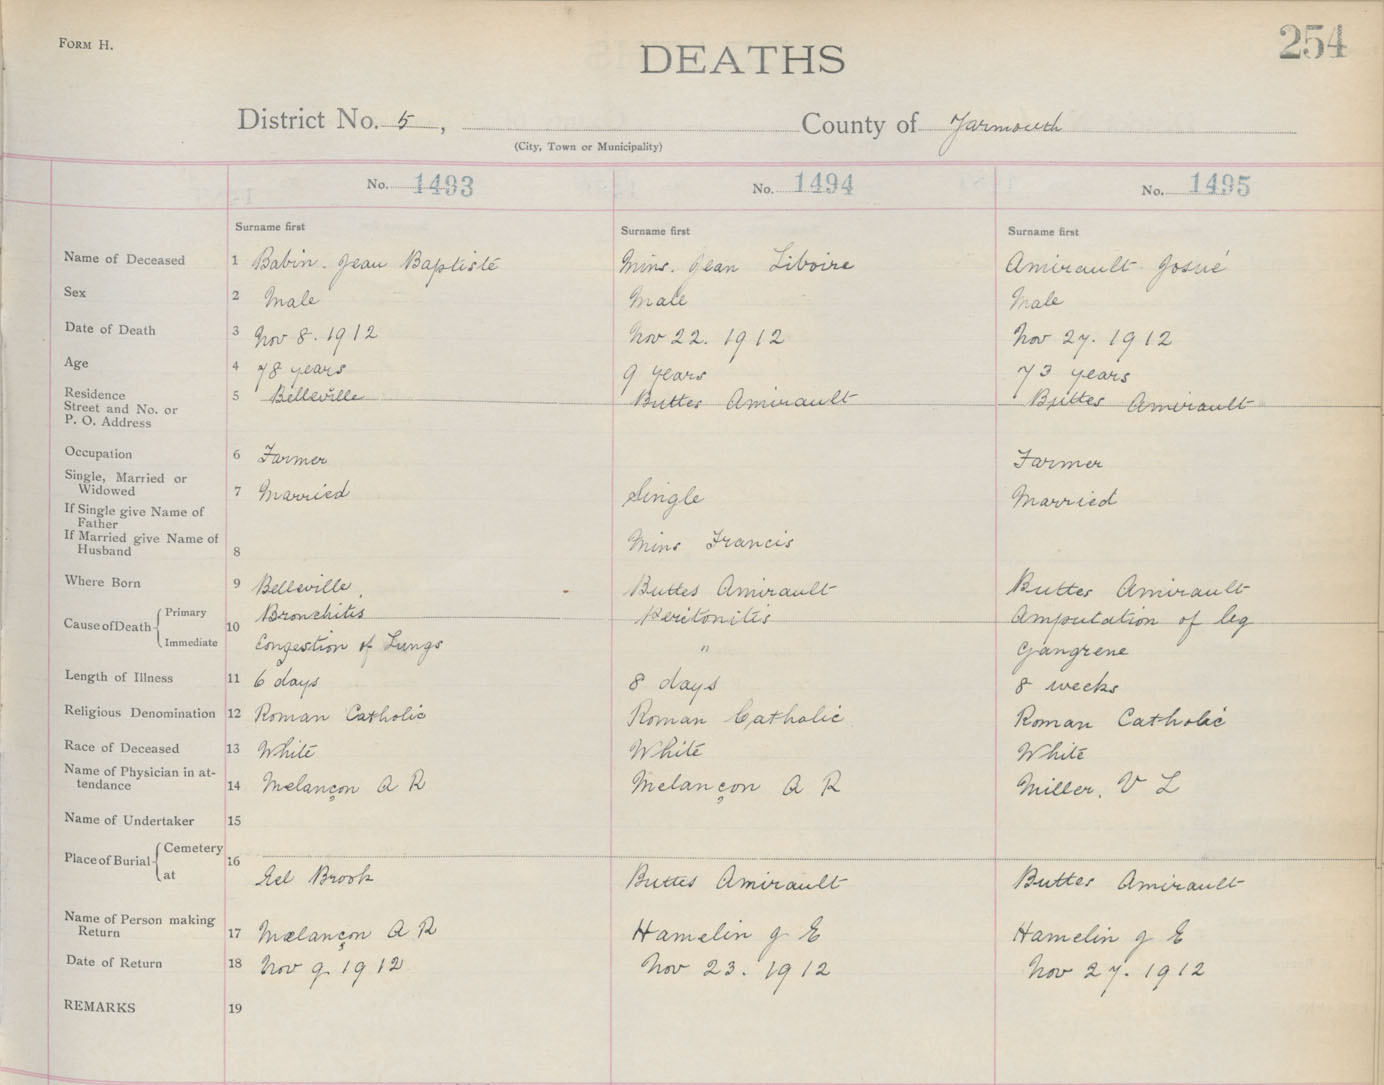 FORM H.
254
DEATHS
District No. 5, County of Yarmouth
(City, Town or Municipality)
No. 1493 No. 1494 No. 1495
Surname first Surname first Surname first
Name of Deceased 1 Babin. Jean Baptiste Mins. Jean Liboire Amirault Josué
Sex 2 Male Male Male
Date of Death 3 Nov 8. 1912 Nov 22. 1912 Nov 27. 1912
Age 4 78 years 9 years 73 years
Residence 5 Belleville Buttes Amirault Buttes Amirault
Street and No. or
P. O. Address
Occupation 6 Farmer Farmer
Single, Married or
Widowed 7 Married Single Married
If Single give Name of
Father
If Married give Name of Mins Francis
Husband 8
Where Born 9 Belleville. Buttes Amirault Buttes Amirault
Cause of Death Primary 10 Bronchitis Peritonitis Amputation of leg
Immediate Congestion of Lungs " Gangrene
Length of Illness 11 6 days 8 days 8 weeks
Religious Denomination 12 Roman Catholic Roman Catholic Roman Catholic
Race of Deceased 13 White White White
Name of Physician in at-
tendance 14 Melançon A R Melançon A R Miller. V L
Name of Undertaker 15
Place of Burial Cemetery 16
at Eel Brook Buttes Amirault Buttes Amirault
Name of Person making
Return 17 Melançon A R Hamelin J E Hamelin J E
Date of Return 18 Nov 9. 1912 Nov 23. 1912 Nov 27. 1912
REMARKS 19